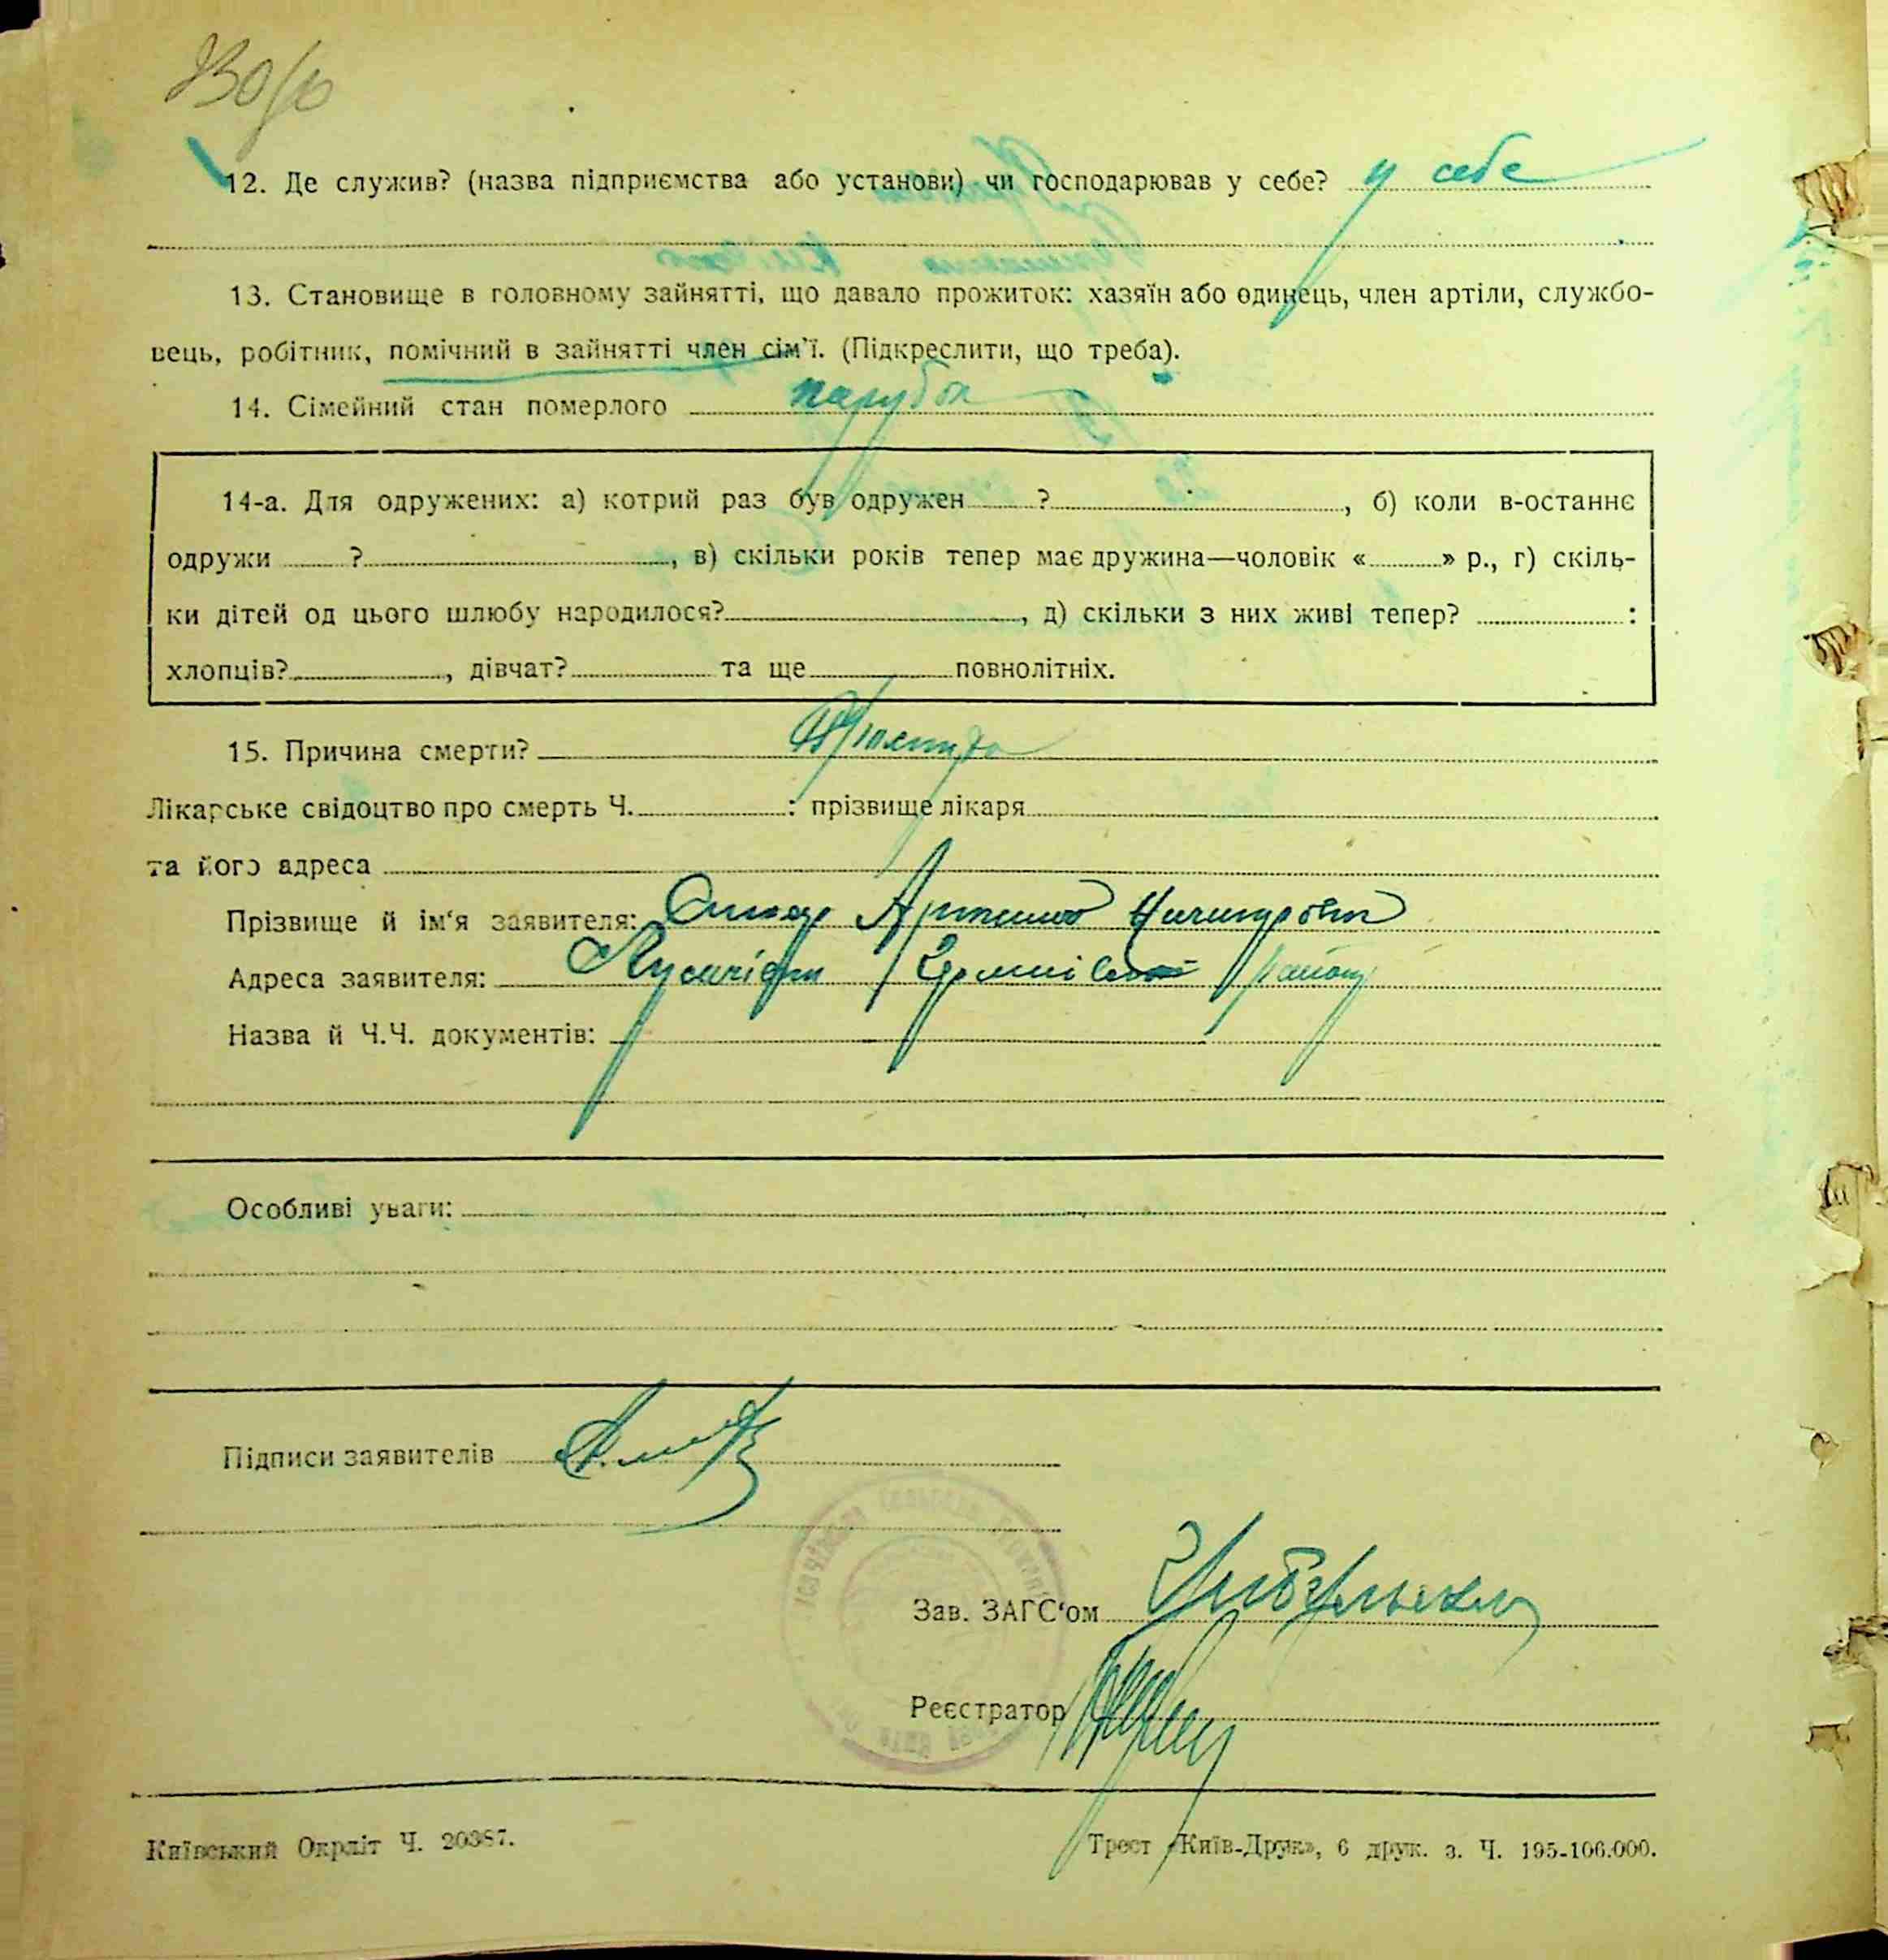 12. Де служив? (назва підприємства або установи) чи господарював у себе? у себе
13. Становище в головному зайнятті, що давало прожиток: хазяїн або одинець, член артіли, службо-
вець, робітник, помічний в зайнятті член сім'ї. (Підкреслити, що треба).
14. Сімейний стан померлого парубок
14-а. Для одружених: а) котрий раз був одружен ?, б) коли в-останнє
одружи ?, в) скільки років тепер має дружина—чоловік « » р., г) скіль-
ки дітей од цього шлюбу народилося?, д) скільки з них живі тепер? :
хлопців?, дівчат? та ще повнолітніх.
15. Причина смерти?
Лікарське свідоцтво про смерть Ч. : прізвище лікаря
та його адреса
Прізвище й ім'я заявителя:
Адреса заявителя: району
Назва й Ч.Ч. документів:
Особливі уваги:
Підписи заявителів
Зав. ЗАГС'ом
Реєстратор
Київський Окрліт Ч. 20387.
Трест «Київ-Друк», 6 друк. з. Ч. 195-106.000.